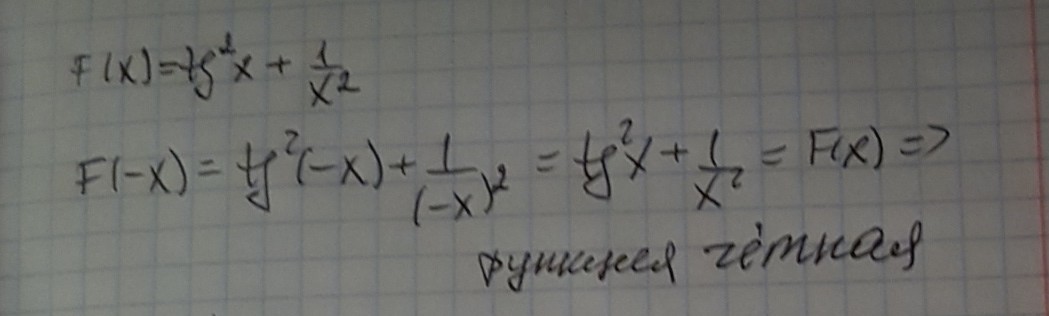 F(x)=tg²x + 1/x²
F(-x) = tg²(-x) + 1/(-x)² = tg²x + 1/x² = F(x) =>
функция чётная